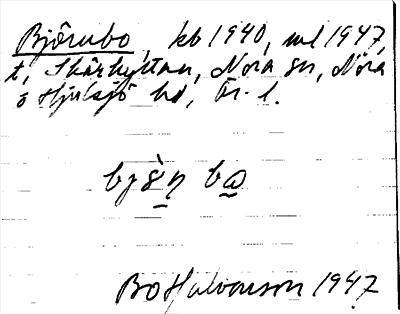 Björnbo, kb 1940, ml 1947,
t, Skärhyttan, Nora sn, Nora
o Hjulsjö hd, Ör. l.
bjö̀n bo
Bo Halvarson 1947.